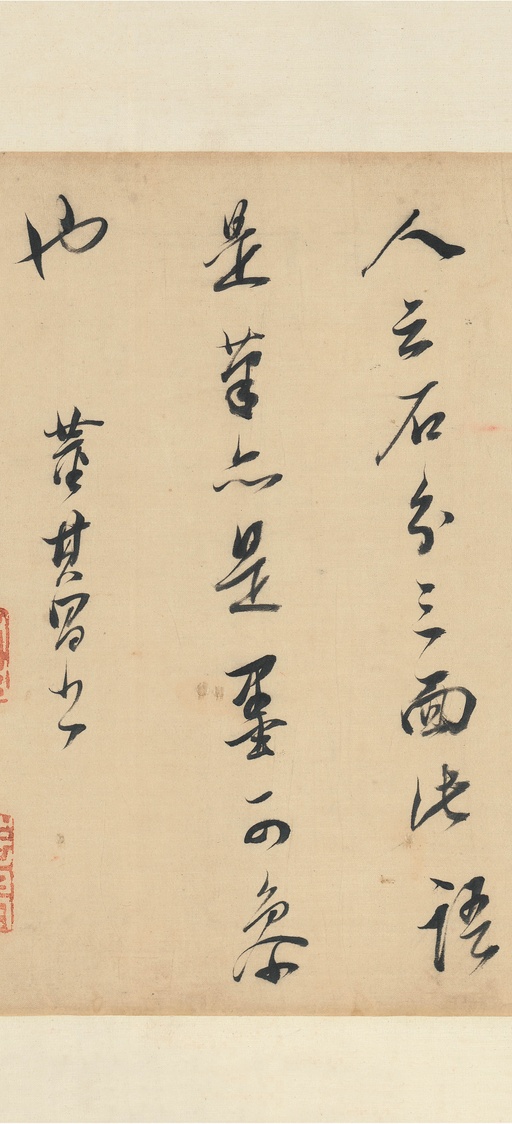 人云石分三面此語
是筆亦是墨可參
也
董其昌書